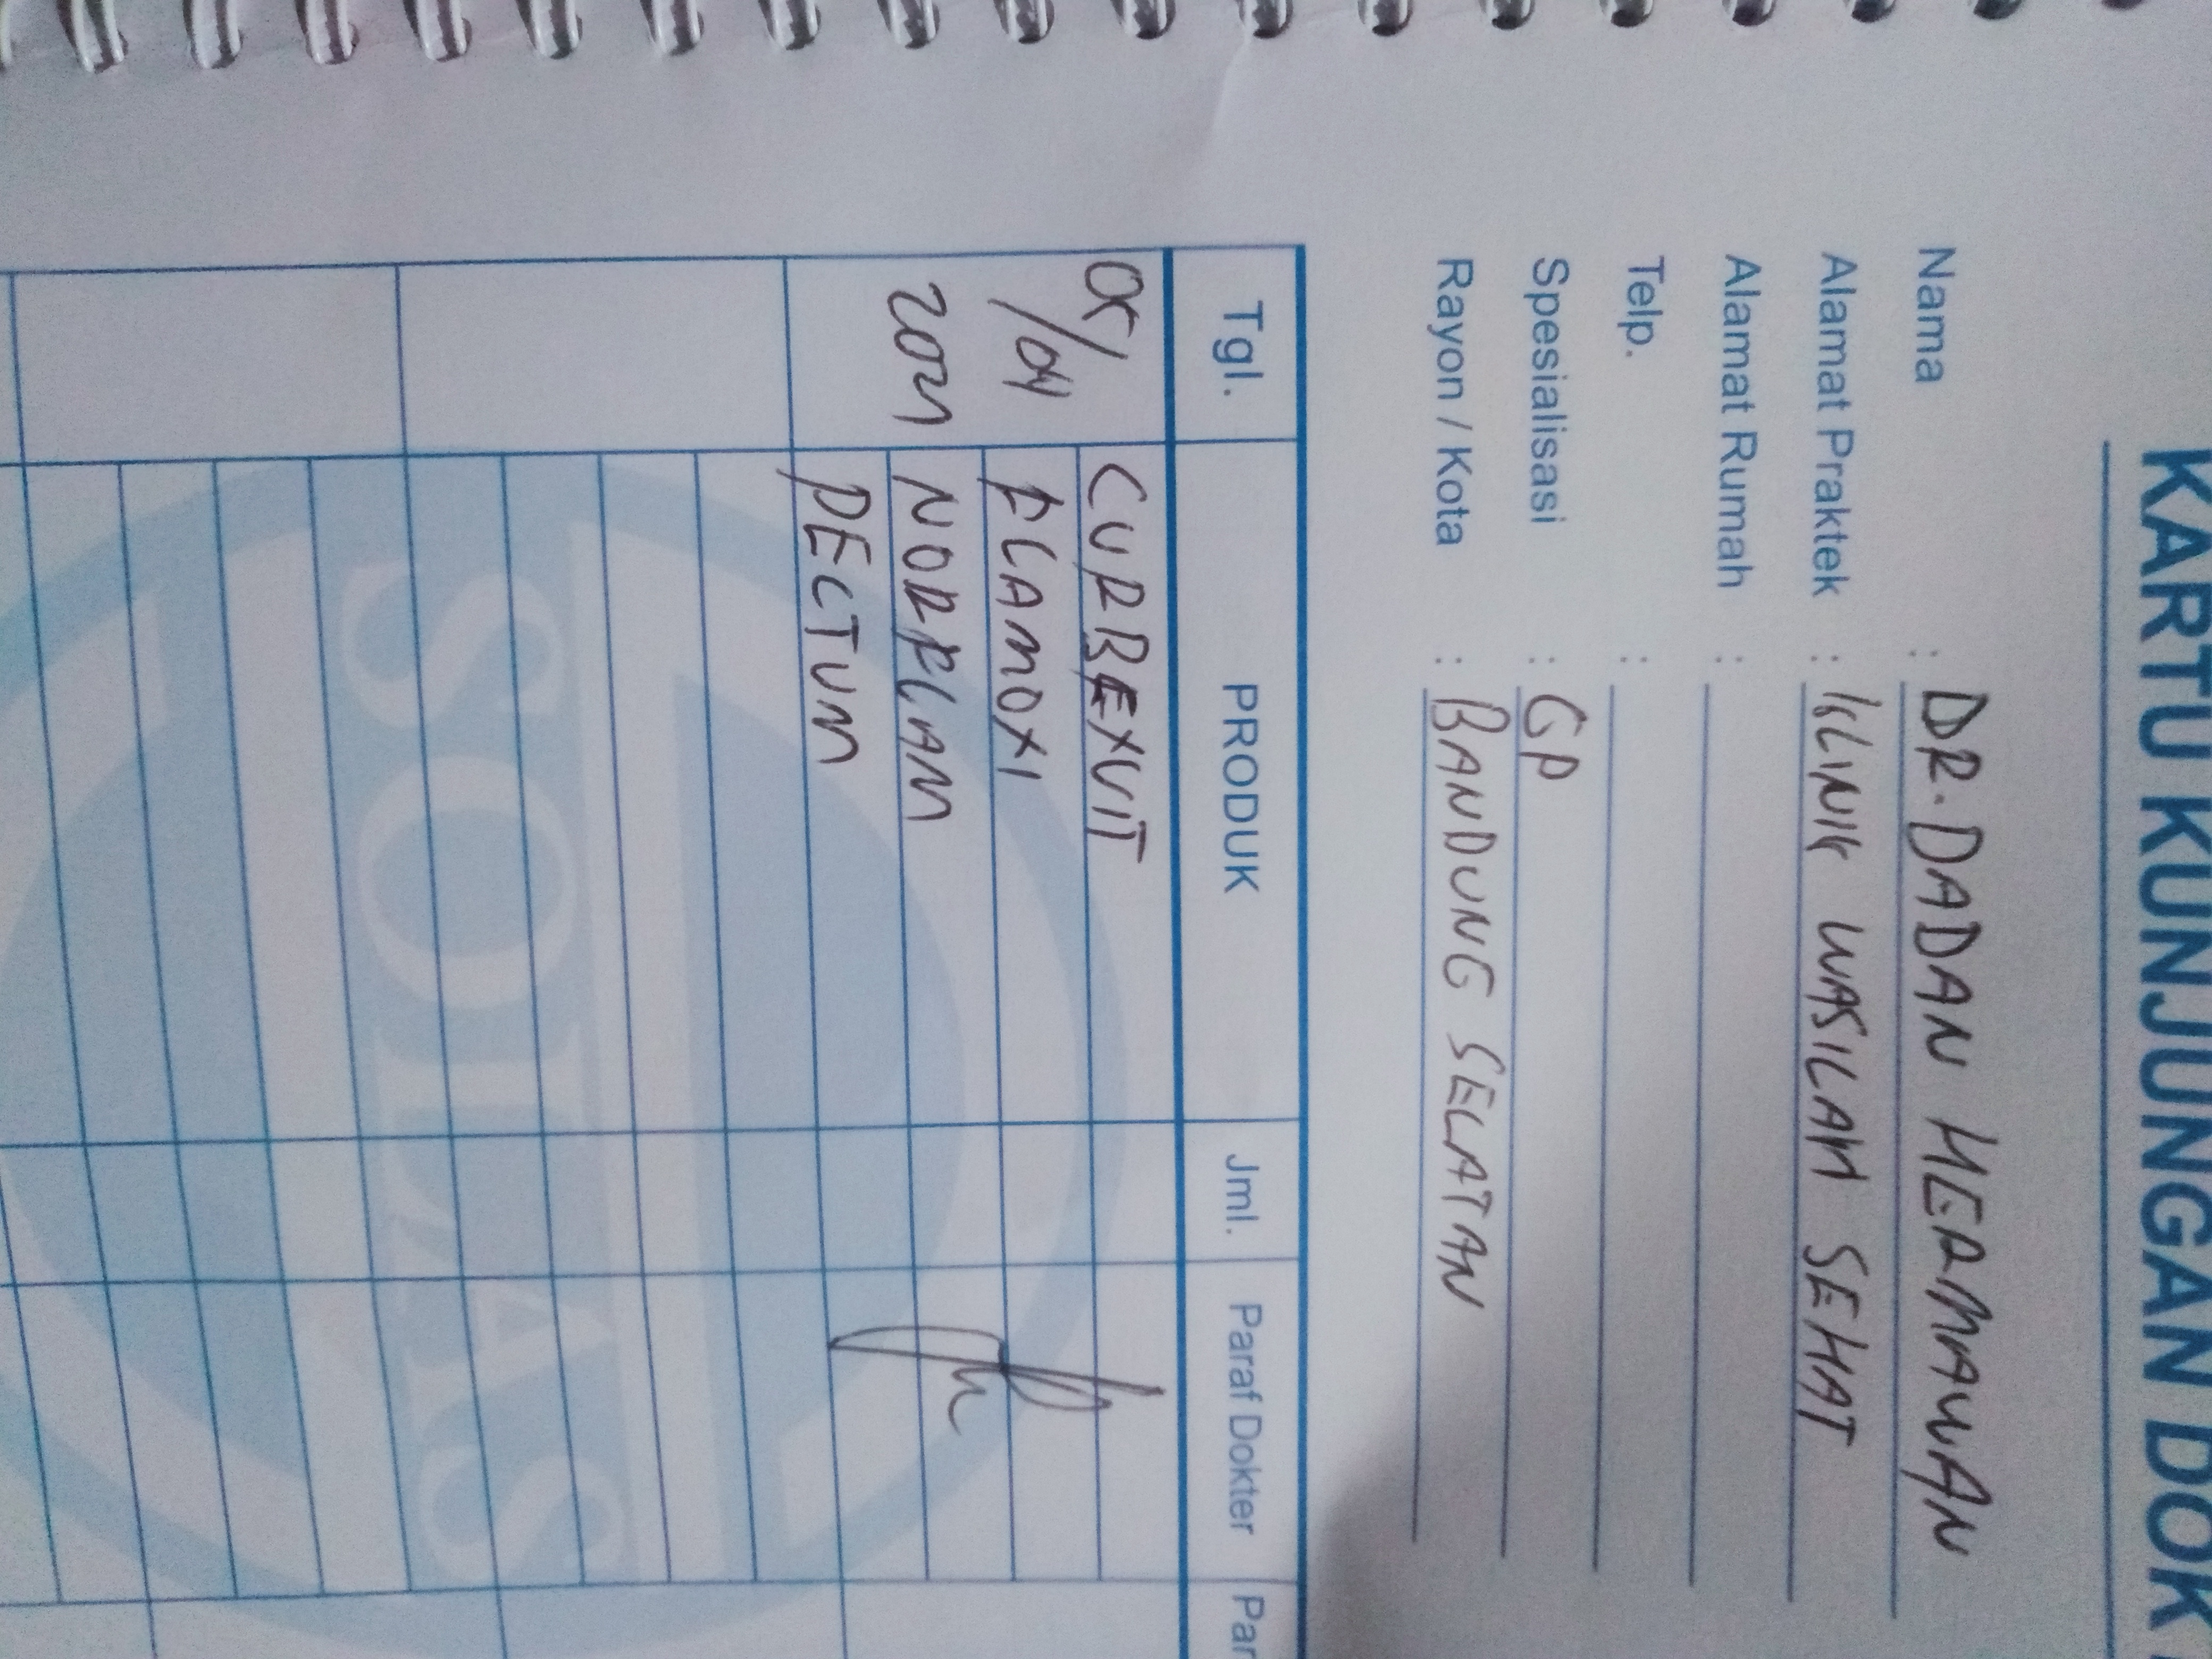 KARTU KUNJUNGAN DOK
Nama : DR. DADAN HERMAWAN
Alamat Praktek : KLINIK WASILAH SEHAT
Alamat Rumah :
Telp. :
Spesialisasi : GP
Rayon / Kota : BANDUNG SELATAN
Tgl. PRODUK Jml. Paraf Dokter Par
05/ CURBEXVIT
/04 FLAMOXI
2021 NORFLAM
PECTUM
SOLAS